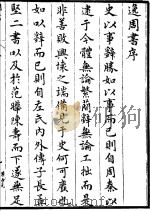 逸周書序
史以事辭勝如以事而已則自周秦以
逮于今體無論繁簡辭無論工拙而美
非善敗興壞之端備見于史何可廢也
如以辭而已則自左氏內外傳子長孟
堅二書以及於范曄陳壽而下遂無足